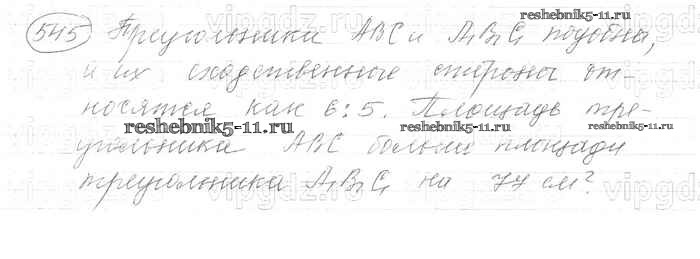 545 Треугольники ABC и A₁B₁C₁ подобны,
и их сходственные стороны от-
носятся как 6:5. Площадь тре-
угольника ABC больше площади
треугольника A₁B₁C₁ на 77 см²
reshebnik5-11.ru
reshebnik5-11.ru
reshebnik5-11.ru
reshebnik5-11.ru
vipgdz.ru
vipgdz.ru
vipgdz.ru